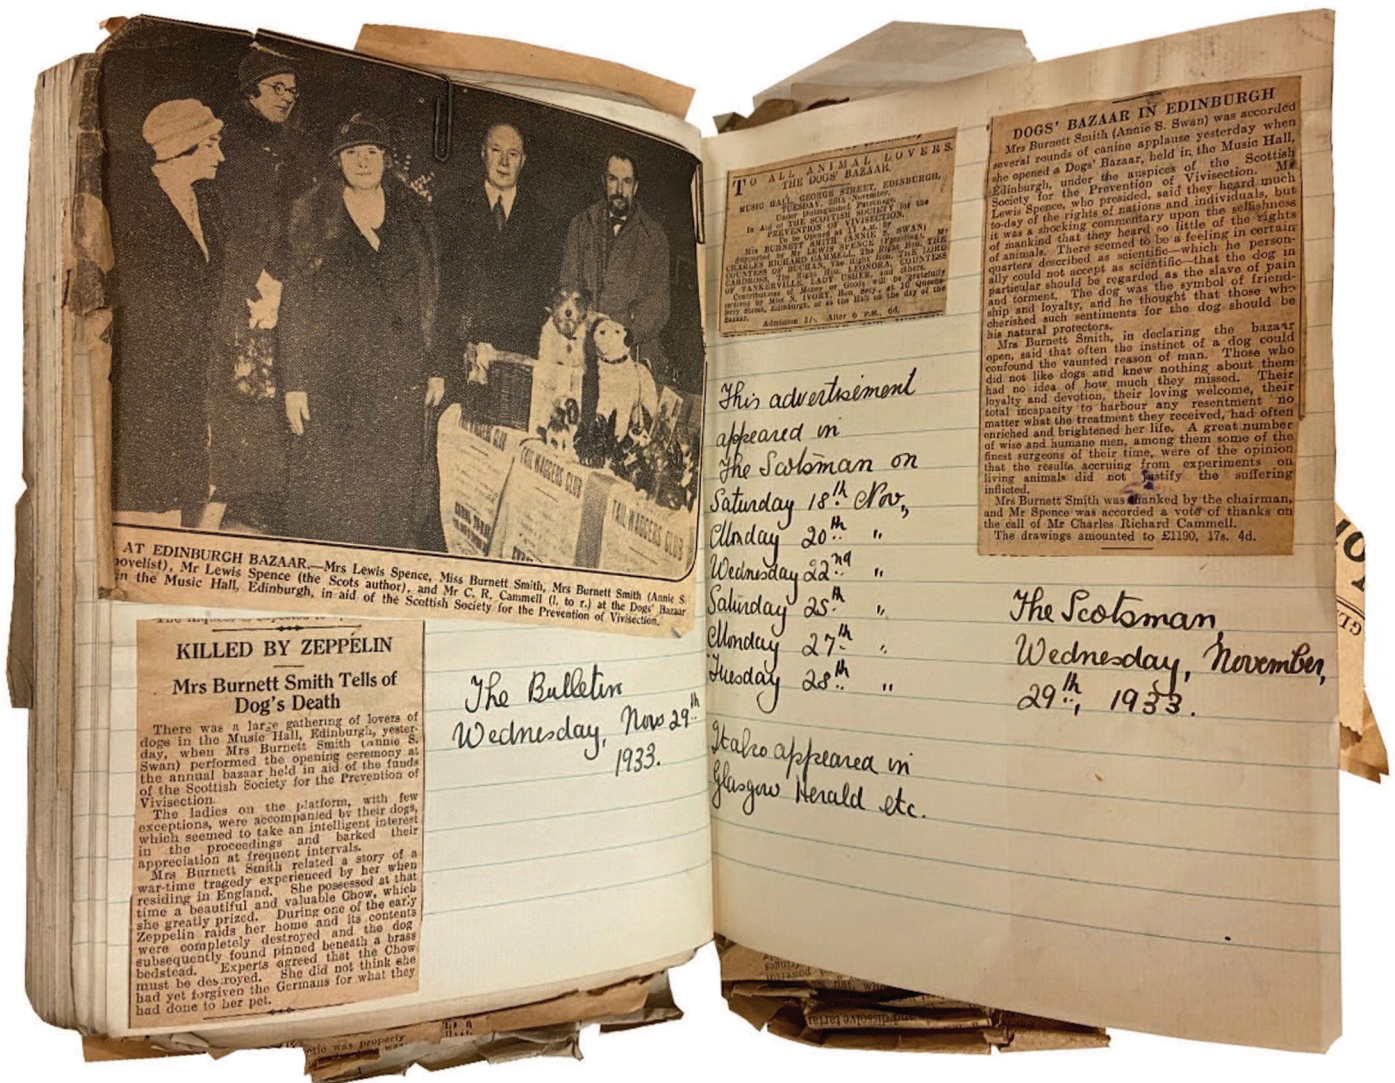 TAIL WAGGERS CLUB
TAIL WAGGERS CLUB
TAIL WAGGERS CLUB
AT EDINBURGH BAZAAR.—Mrs Lewis Spence, Miss Burnett Smith, Mrs Burnett Smith (Annie S.
novelist), Mr Lewis Spence (the Scots author), and Mr C. R. Cammell (l. to r.) at the Dogs' Bazaar
in the Music Hall, Edinburgh, in aid of the Scottish Society for the Prevention of Vivisection.
KILLED BY ZEPPELIN
Mrs Burnett Smith Tells of
Dog's Death
There was a large gathering of lovers of
dogs in the Music Hall, Edinburgh, yester-
day, when Mrs Burnett Smith (Annie S.
Swan) performed the opening ceremony at
the annual bazaar held in aid of the funds
of the Scottish Society for the Prevention of
Vivisection.
The ladies on the platform, with few
exceptions, were accompanied by their dogs,
which seemed to take an intelligent interest
in the proceedings and barked their
appreciation at frequent intervals.
Mrs Burnett Smith related a story of a
war-time tragedy experienced by her when
residing in England. She possessed at that
time a beautiful and valuable Chow, which
she greatly prized. During one of the early
Zeppelin raids her home and its contents
were completely destroyed and the dog
subsequently found pinned beneath a brass
bedstead. Experts agreed that the Chow
must be destroyed. She did not think she
had yet forgiven the Germans for what they
had done to her pet.
The Bulletin
Wednesday, Nov 29th
1933.
TO ALL ANIMAL LOVERS.
THE DOGS' BAZAAR.
MUSIC HALL, GEORGE STREET, EDINBURGH,
TUESDAY, 28th November,
Under Distinguished Patronage.
In Aid of THE SCOTTISH SOCIETY for the
PREVENTION OF VIVISECTION.
To be Opened at 11 A.M. by
Mrs BURNETT SMITH (ANNIE S. SWAN)
Supported by Mr LEWIS SPENCE (Presiding), Mr
CHARLES RICHARD CAMMELL, The Right Hon. THE
COUNTESS OF BUCHAN, The Right Hon. THE LORD
CARDROSS, The Right Hon. LEONORA, COUNTESS
OF TANKERVILLE, LADY USHER, and others.
Contributions of Money or Goods will be gratefully
received by Miss N. IVORY, Hon. Secy., at 10 Queens-
ferry Street, Edinburgh, or at the Hall on the day of the
Bazaar.
Admission 1/-. After 6 P.M., 6d.
This advertisement
appeared in
The Scotsman on
Saturday 18th Nov,
Monday 20th "
Wednesday 22nd "
Saturday 25th "
Monday 27th "
Tuesday 28th "
It also appeared in
Glasgow Herald etc.
DOGS' BAZAAR IN EDINBURGH
Mrs Burnett Smith (Annie S. Swan) was accorded
several rounds of canine applause yesterday when
she opened a Dogs' Bazaar, held in the Music Hall,
Edinburgh, under the auspices of the Scottish
Society for the Prevention of Vivisection. Mr
Lewis Spence, who presided, said they heard much
to-day of the rights of nations and individuals, but
it was a shocking commentary upon the selfishness
of mankind that they heard so little of the rights
of animals. There seemed to be a feeling in certain
quarters described as scientific—which he person-
ally could not accept as scientific—that the dog in
particular should be regarded as the slave of pain
and torment. The dog was the symbol of friend-
ship and loyalty, and he thought that those who
cherished such sentiments for the dog should be
his natural protectors.
Mrs Burnett Smith, in declaring the bazaar
open, said that often the instinct of a dog could
confound the vaunted reason of man. Those who
did not like dogs and knew nothing about them
had no idea of how much they missed. Their
loyalty and devotion, their loving welcome, their
total incapacity to harbour any resentment no
matter what the treatment they received, had often
enriched and brightened her life. A great number
of wise and humane men, among them some of the
finest surgeons of their time, were of the opinion
that the results accruing from experiments on
living animals did not justify the suffering
inflicted.
Mrs Burnett Smith was thanked by the chairman,
and Mr Spence was accorded a vote of thanks on
the call of Mr Charles Richard Cammell.
The drawings amounted to £1190, 17s. 4d.
The Scotsman
Wednesday, November,
29th, 1933.